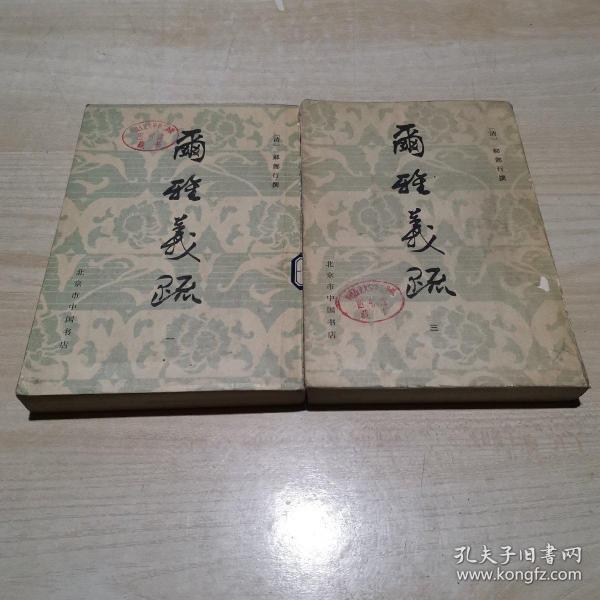 爾雅義疏
〔清〕郝懿行撰
北京市中国书店
一
爾雅義疏
〔清〕郝懿行撰
北京市中国书店
三
孔夫子旧书网
www.kongfz.com